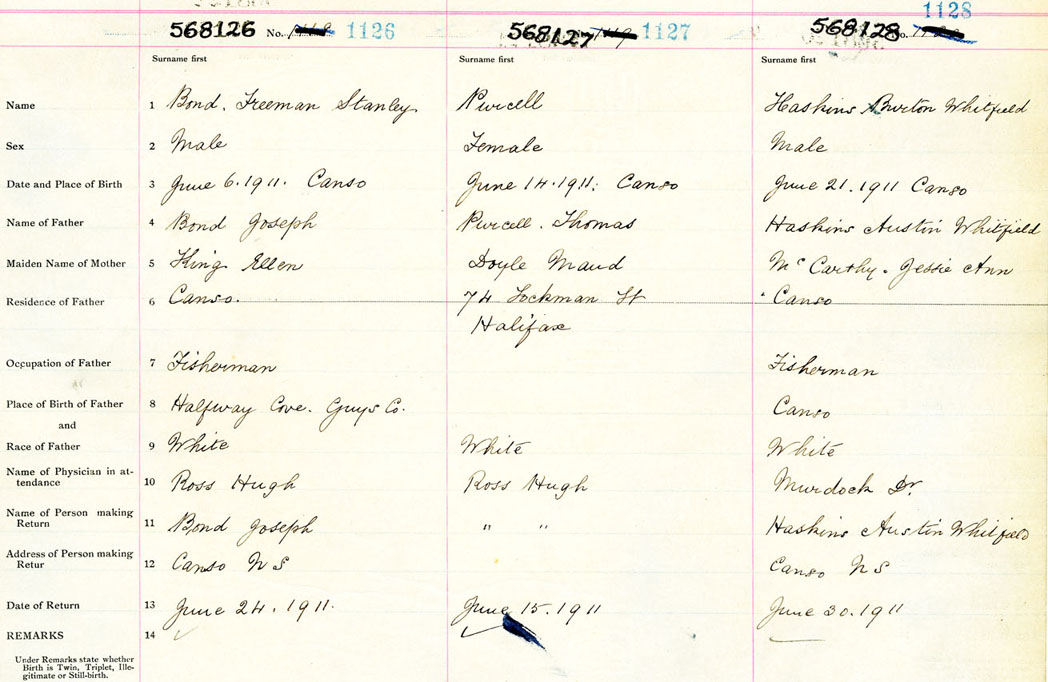 1128
568126 No. 1126 568127 1127 568128 No.
Surname first Surname first Surname first
Name 1 Bond. Freeman Stanley Purcell Haskins Burton Whitfield
Sex 2 Male Female Male
Date and Place of Birth 3 June 6. 1911. Canso June 14. 1911. Canso June 21. 1911 Canso
Name of Father 4 Bond Joseph Purcell. Thomas Haskins Austin Whitfield
Maiden Name of Mother 5 King Ellen Doyle Maud McCarthy. Jessie Ann
Residence of Father 6 Canso. 74 Lockman St Canso
Halifax
Occupation of Father 7 Fisherman Fisherman
Place of Birth of Father 8 Halfway Cove. Guys Co. Canso
and
Race of Father 9 White White White
Name of Physician in at-
tendance 10 Ross Hugh Ross Hugh Murdock Dr.
Name of Person making
Return 11 Bond Joseph " " Haskins Austin Whitfield
Address of Person making
Retur 12 Canso N S Canso N S
Date of Return 13 June 24. 1911. June 15. 1911 June 30. 1911
REMARKS 14
Under Remarks state whether
Birth is Twin, Triplet, Ille-
gitimate or Still-birth.